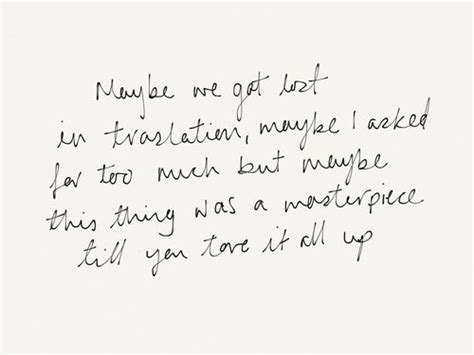 Maybe we got lost
in traslation, maybe I asked
for too much but maybe
this thing was a masterpiece
till you tore it all up